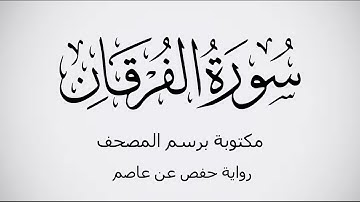 سُورَةُ الْفُرْقَانِ
مكتوبة برسم المصحف
رواية حفص عن عاصم